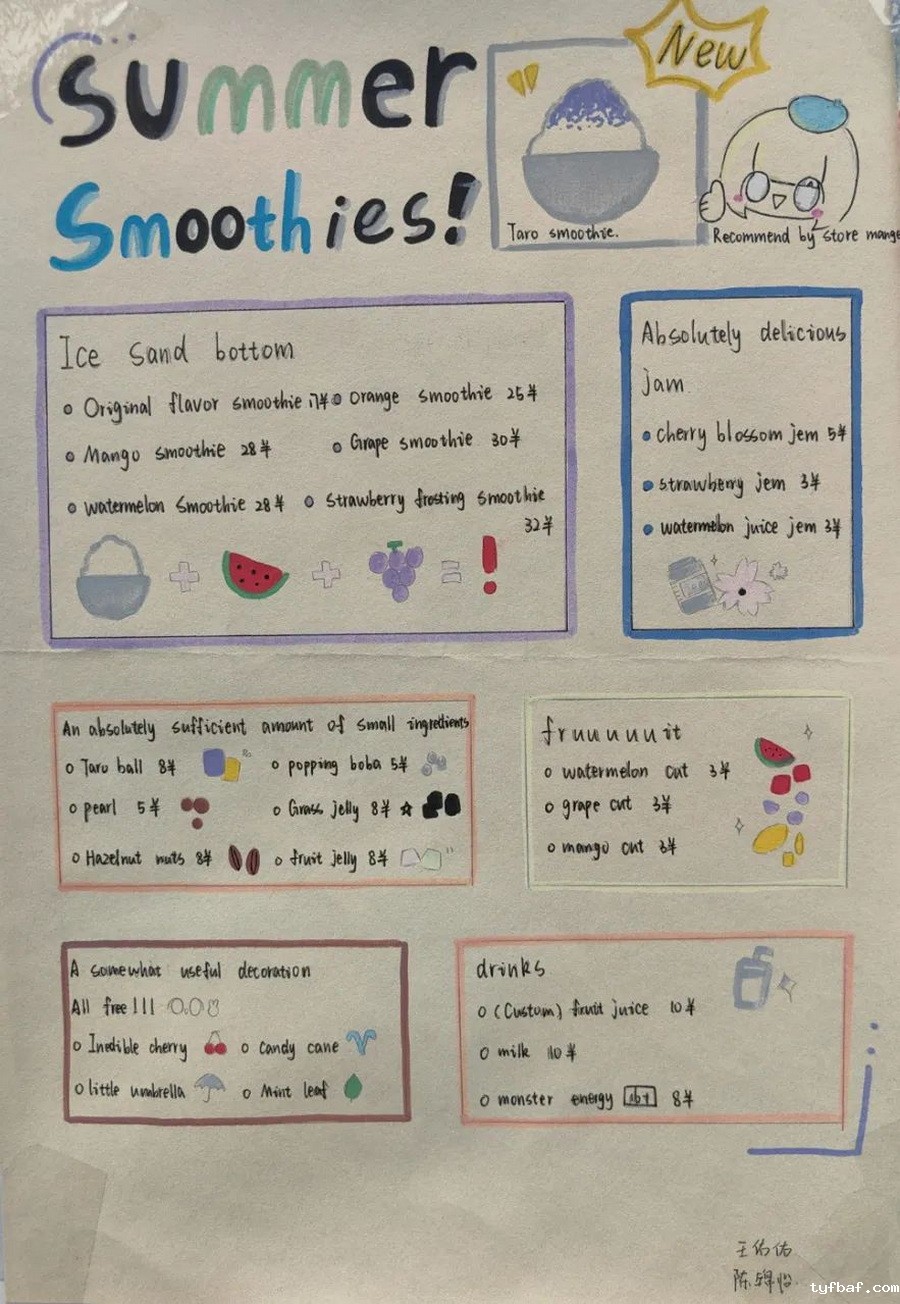 Summer
Smoothies!
New
Taro smoothie.
Recommend by store mange
Ice sand bottom
Original flavor smoothie 17¥
Orange smoothie 25¥
Mango smoothie 28¥
Grape smoothie 30¥
watermelon smoothie 28¥
strawberry frosting smoothie
32¥
Absolutely delicious
jam
cherry blossom jem 5¥
strawberry jem 3¥
watermelon juice jem 3¥
An absolutely sufficient amount of small ingredients
Taro ball 8¥
popping boba 5¥
pearl 5¥
Grass jelly 8¥
Hazelnut nuts 8¥
fruit jelly 8¥
fruuuuuit
watermelon cut 3¥
grape cut 3¥
mango cut 3¥
A somewhat useful decoration
All free!!! 0.0
Inedible cherry
candy cane
little umbrella
Mint leaf
drinks
(Custom) fruit juice 10¥
milk 10¥
monster energy 8¥
tyfbaf.com